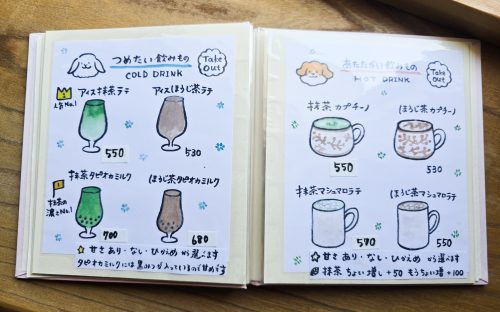 つめたい飲みもの
COLD DRINK
Take Out
人気No.1
アイス抹茶ラテ
550
アイスほうじ茶ラテ
530
抹茶の濃さNo.1
抹茶タピオカミルク
700
ほうじ茶タピオカミルク
680
甘さあり・なし・ひかえめ から選べます
タピオカミルクには黒みつが入っているので甘めです
あたたかい飲みもの
HOT DRINK
Take Out
抹茶カプチーノ
550
ほうじ茶カプチーノ
530
抹茶マシュマロラテ
570
ほうじ茶マシュマロラテ
550
甘さ あり・なし・ひかえめ から選べます
抹茶 ちょい増し +50 もうちょい +100